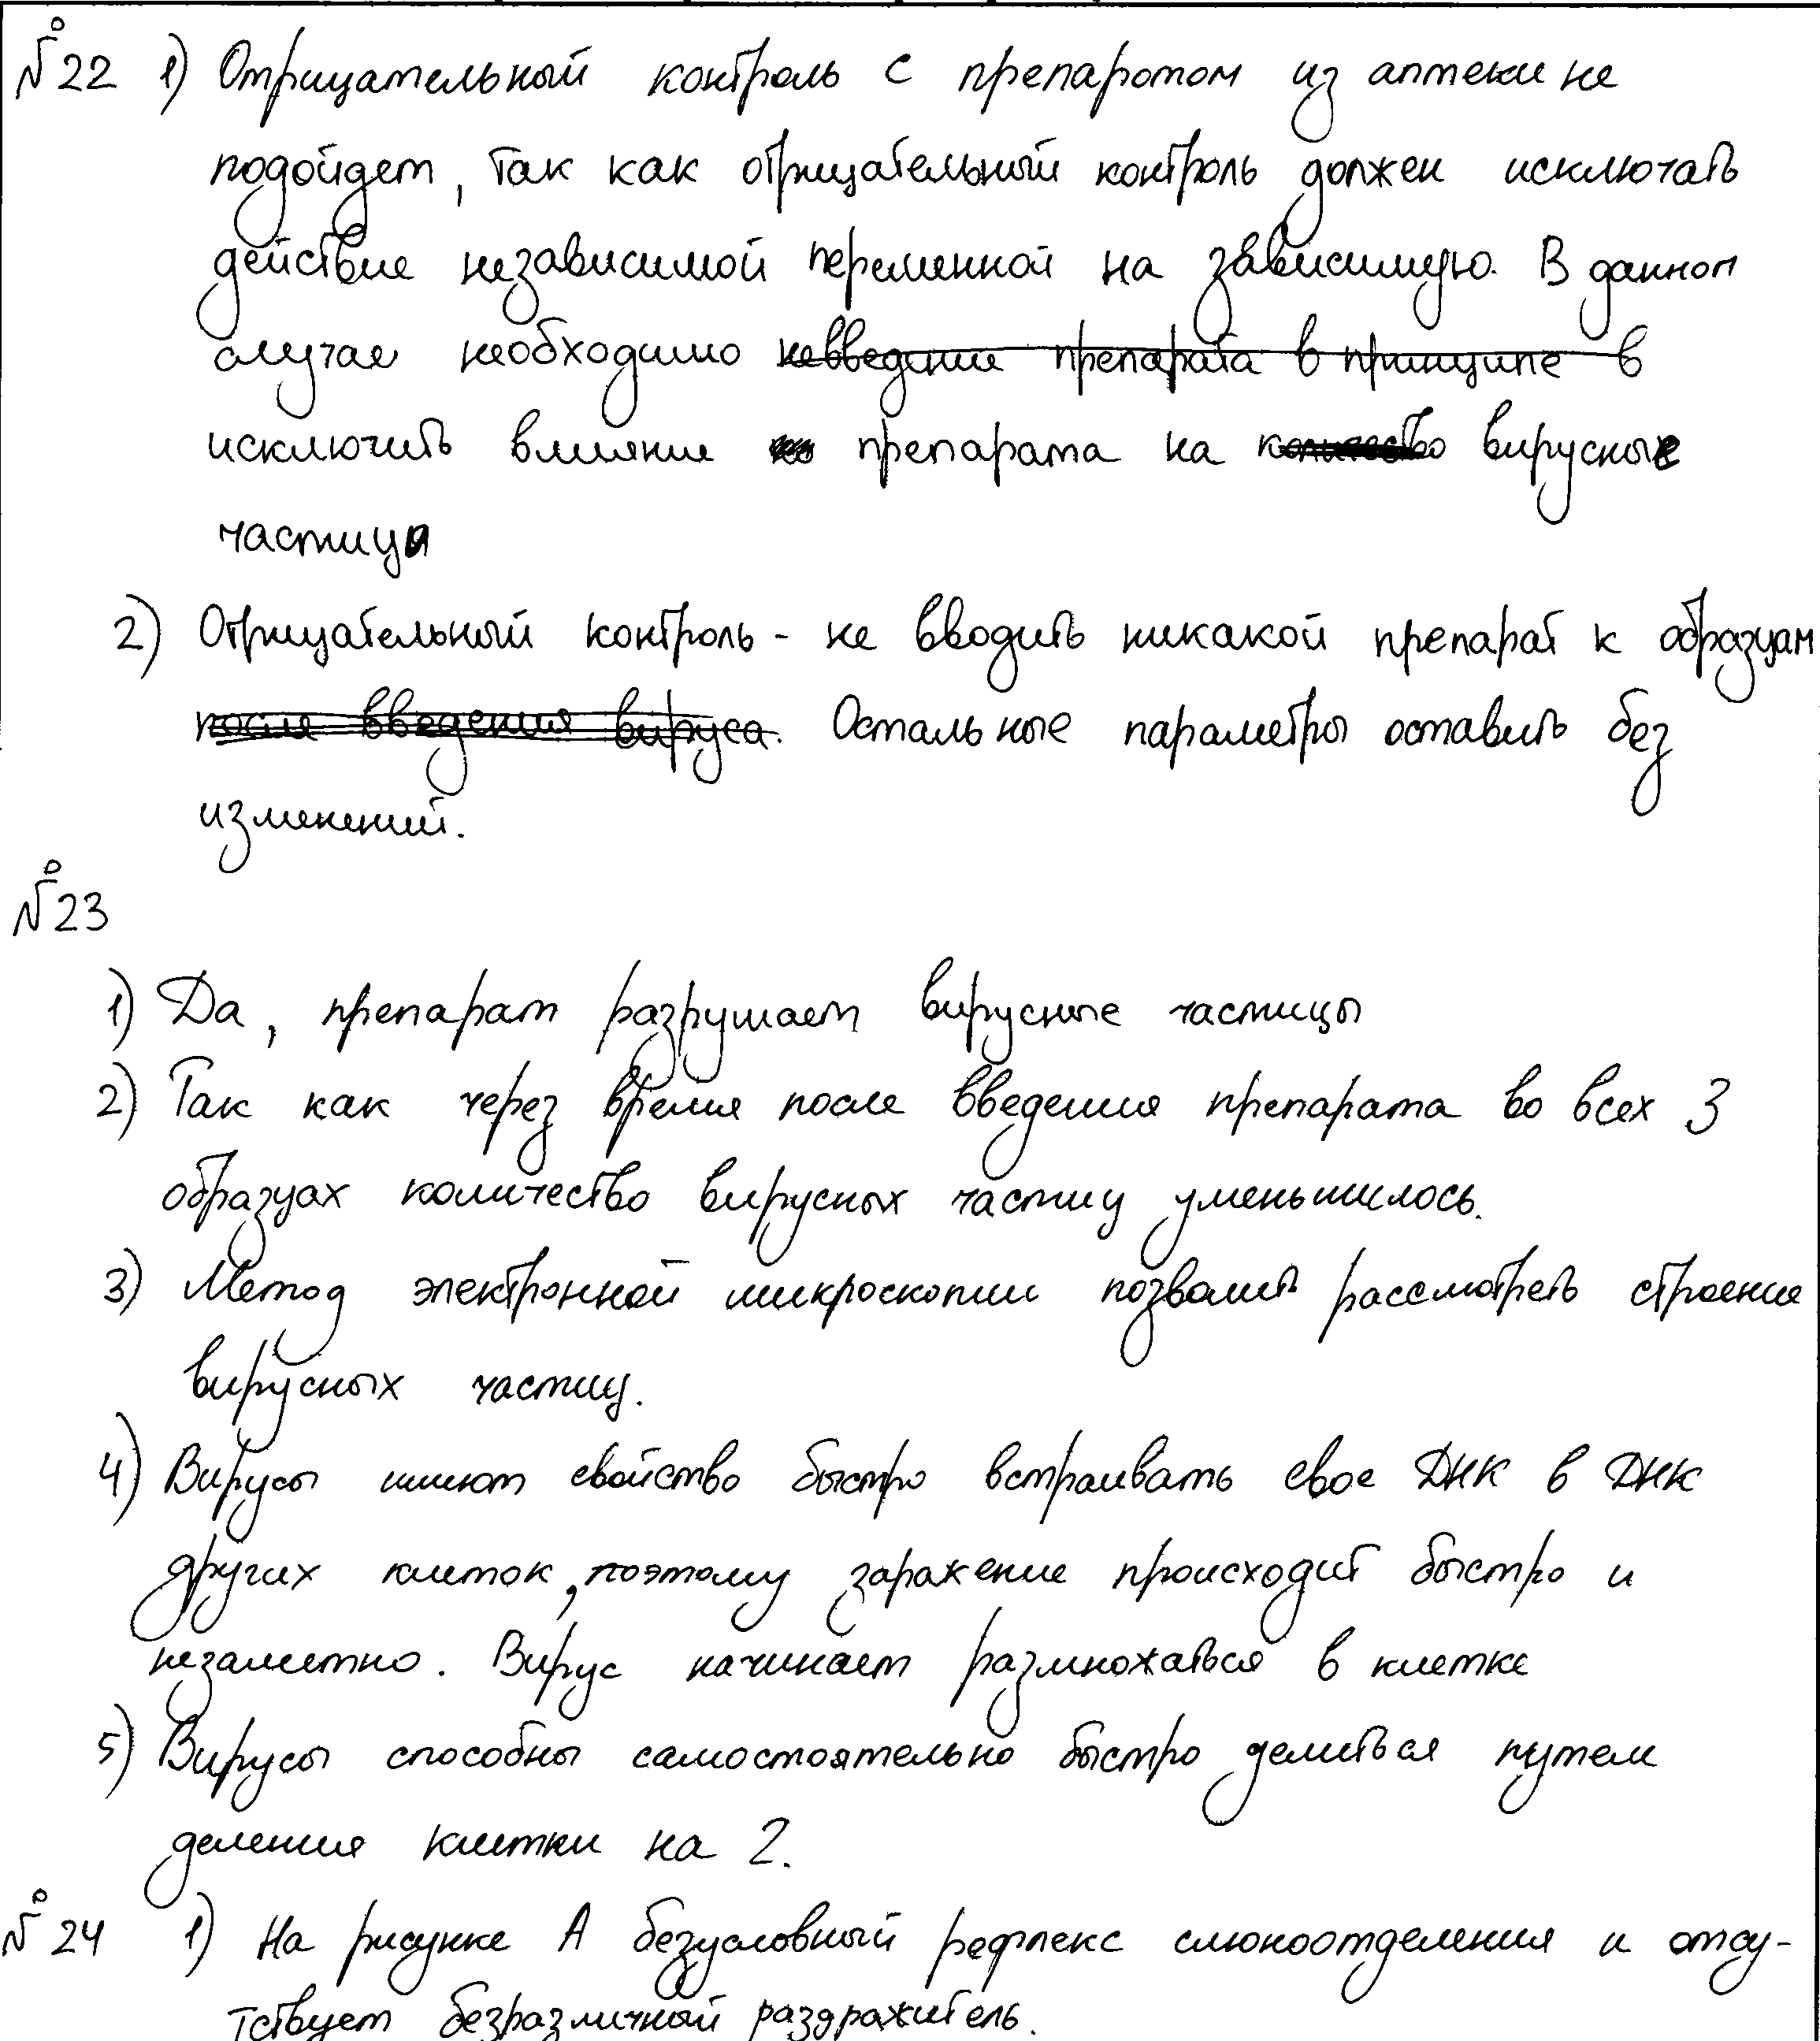 №22 1) Отрицательный контроль с препаратом из аптеки не
подойдет, так как отрицательный контроль должен исключать
действие независимой переменной на зависимую. В данном
случае необходимо невведение препарата в принципе в
исключить влияние препарата на количество вирусные
частицы
2) Отрицательный контроль - не вводить никакой препарат к образцам
после введения вируса. Остальные параметры оставить без
изменений.
№23
1) Да, препарат разрушает вирусные частицы
2) Так как через время после введения препарата во всех 3
образцах количество вирусных частиц уменьшилось.
3) Метод электронной микроскопии позволит рассмотреть строение
вирусных частиц.
4) Вирусы имеют свойство быстро встраивать свое ДНК в ДНК
других клеток, поэтому заражение происходит быстро и
незаметно. Вирус начинает размножаться в клетке
5) Вирусы способны самостоятельно быстро делиться путем
деления клетки на 2.
№24 1) На рисунке А безусловный рефлекс слюноотделения и отсу-
тствует безразличный раздражитель.